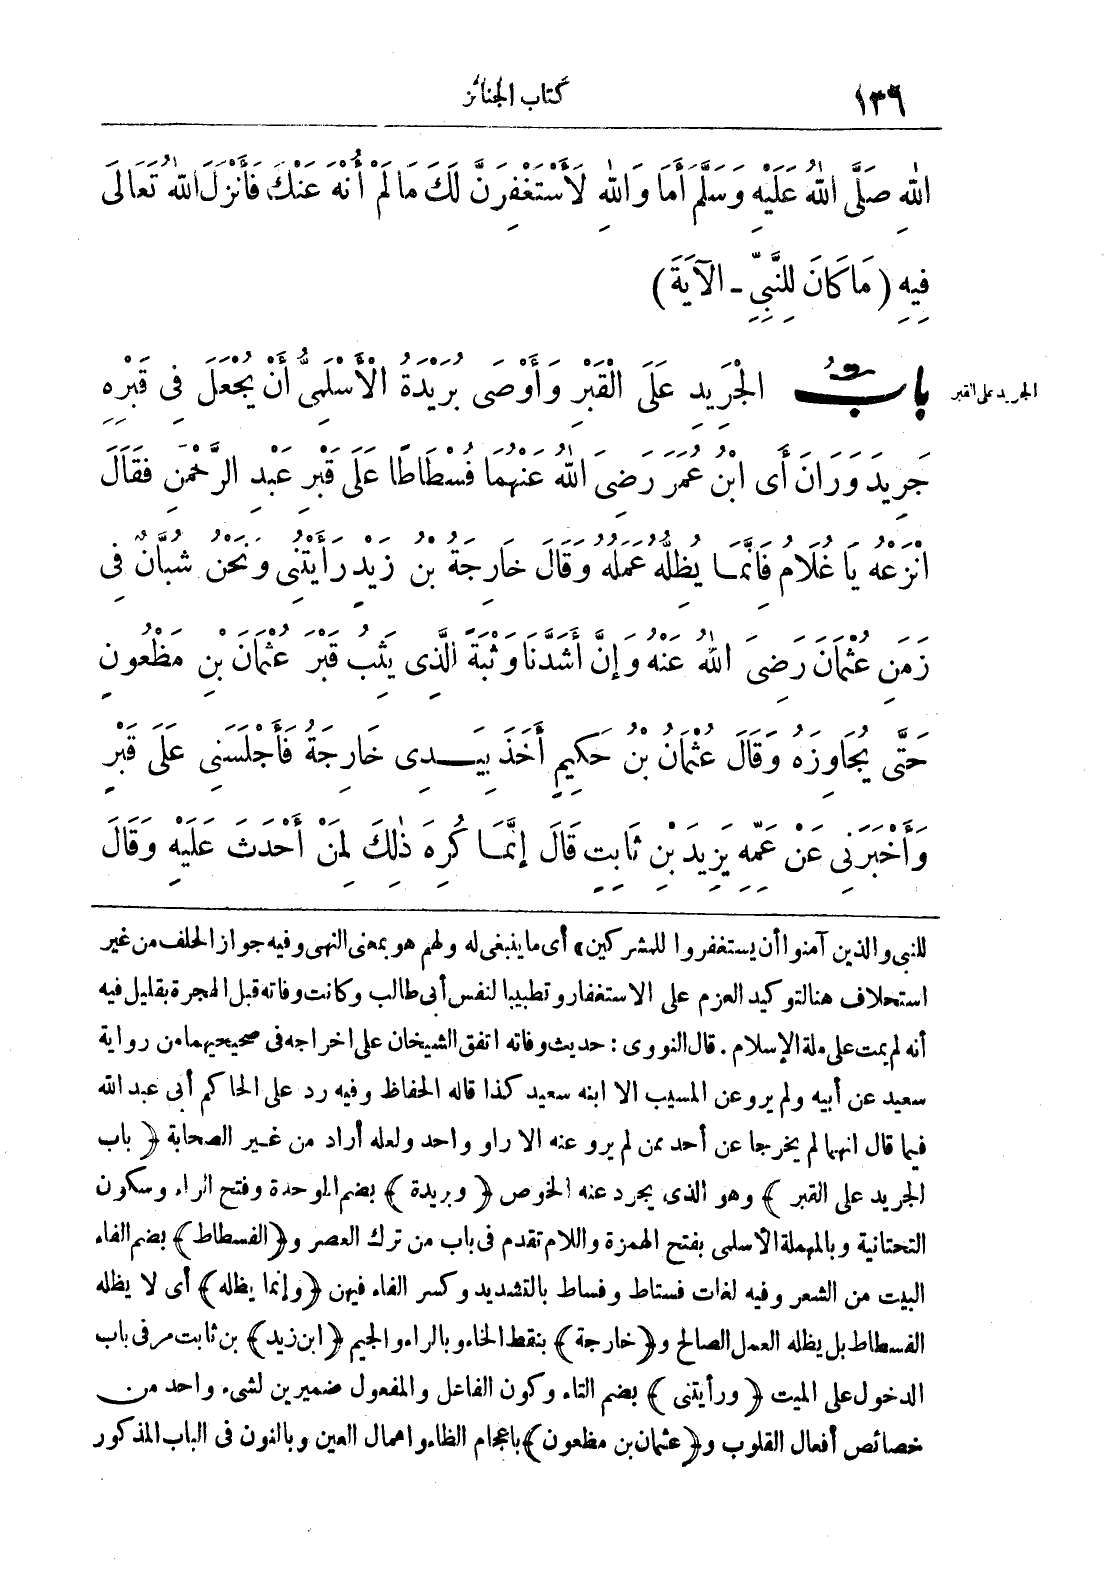 ١٣٦
كتاب الجنائز
اللهِ صَلَّى اللهُ عَلَيْهِ وَسَلَّمَ أَمَا وَاللهِ لَأَسْتَغْفِرَنَّ لَكَ مَا لَمْ أُنْهَ عَنْكَ فَأَنْزَلَ اللهُ تَعَالَى
فِيهِ (مَا كَانَ لِلنَّبِيِّ - الآيَةَ)
بابُ الْجَرِيدِ عَلَى الْقَبْرِ وَأَوْصَى بُرَيْدَةُ الْأَسْلَمِيُّ أَنْ يُجْعَلَ فِى قَبْرِهِ
الجريد على القبر
جَرِيدَ وَرَانَ أَى ابْنُ عُمَرَ رَضِىَ اللهُ عَنْهُمَا فُسْطَاطًا عَلَى قَبْرِ عَبْدِ الرَّحْمٰنِ فَقَالَ
انْزِعْهُ يَا غُلَامُ فَإِنَّمَا يُظِلُّهُ عَمَلُهُ وَقَالَ خَارِجَةُ بْنُ زَيْدٍ رَأَيْتُنِى وَنَحْنُ شُبَّانٌ فِى
زَمَنِ عُثْمَانَ رَضِىَ اللهُ عَنْهُ وَإِنَّ أَشَدَّنَا وَثْبَةً الَّذِى يَثِبُ قَبْرَ عُثْمَانَ بْنِ مَظْعُونٍ
حَتَّى يُجَاوِزَهُ وَقَالَ عُثْمَانُ بْنُ حَكِيمٍ أَخَذَ بِيَدِى خَارِجَةُ فَأَجْلَسَنِى عَلَى قَبْرٍ
وَأَخْبَرَنِى عَنْ عَمِّهِ يَزِيدَ بْنِ ثَابِتٍ قَالَ إِنَّمَا كُرِهَ ذٰلِكَ لِمَنْ أَحْدَثَ عَلَيْهِ وَقَالَ
للنبى والذين آمنوا أن يستغفروا للمشركين» أى ما ينبغى له ولهم هو بمعنى النهى وفيه جواز الحلف من غير
استحلاف هنا لتوكيد العزم على الاستغفار وتطييبا لنفس أبى طالب وكانت وفاته قبل الهجرة بقليل فيه
أنه لم يمت على ملة الإسلام . قال النووى : حديث وفاته اتفق الشيخان على اخراجه فى صحيحيهما من رواية
سعيد عن أبيه ولم يرو عن المسيب الا ابنه سعيد كذا قاله الحفاظ وفيه رد على الحاكم أبى عبد الله
فيما قال انهما لم يخرجا عن أحد ممن لم يرو عنه الا راو واحد ولعله أراد من غير الصحابة ﴿ باب
الجريد على القبر ﴾ وهو الذى يجرد عنه الخوص ﴿ وبريدة ﴾ بضم الموحدة وفتح الراء وسكون
التحتانية وبالمهملة الأسلمى بفتح الهمزة واللام تقدم فى باب من ترك العصر و﴿ الفسطاط ﴾ بضم الفاء
البيت من الشعر وفيه لغات فستاط وفساط بالتشديد وكسر الفاء فيهن ﴿ وإنما يظله ﴾ أى لا يظله
الفسطاط بل يظله العمل الصالح و﴿ خارجة ﴾ بنقط الخاء وبالراء والجيم ﴿ ابن زيد ﴾ بن ثابت مر فى باب
الدخول على الميت ﴿ ورأيتنى ﴾ بضم التاء وكون الفاعل والمفعول ضميرين لشىء واحد من
خصائص أفعال القلوب و﴿ عثمان بن مظعون ﴾ باعجام الظاء واهمال العين وبالنون فى الباب المذكور